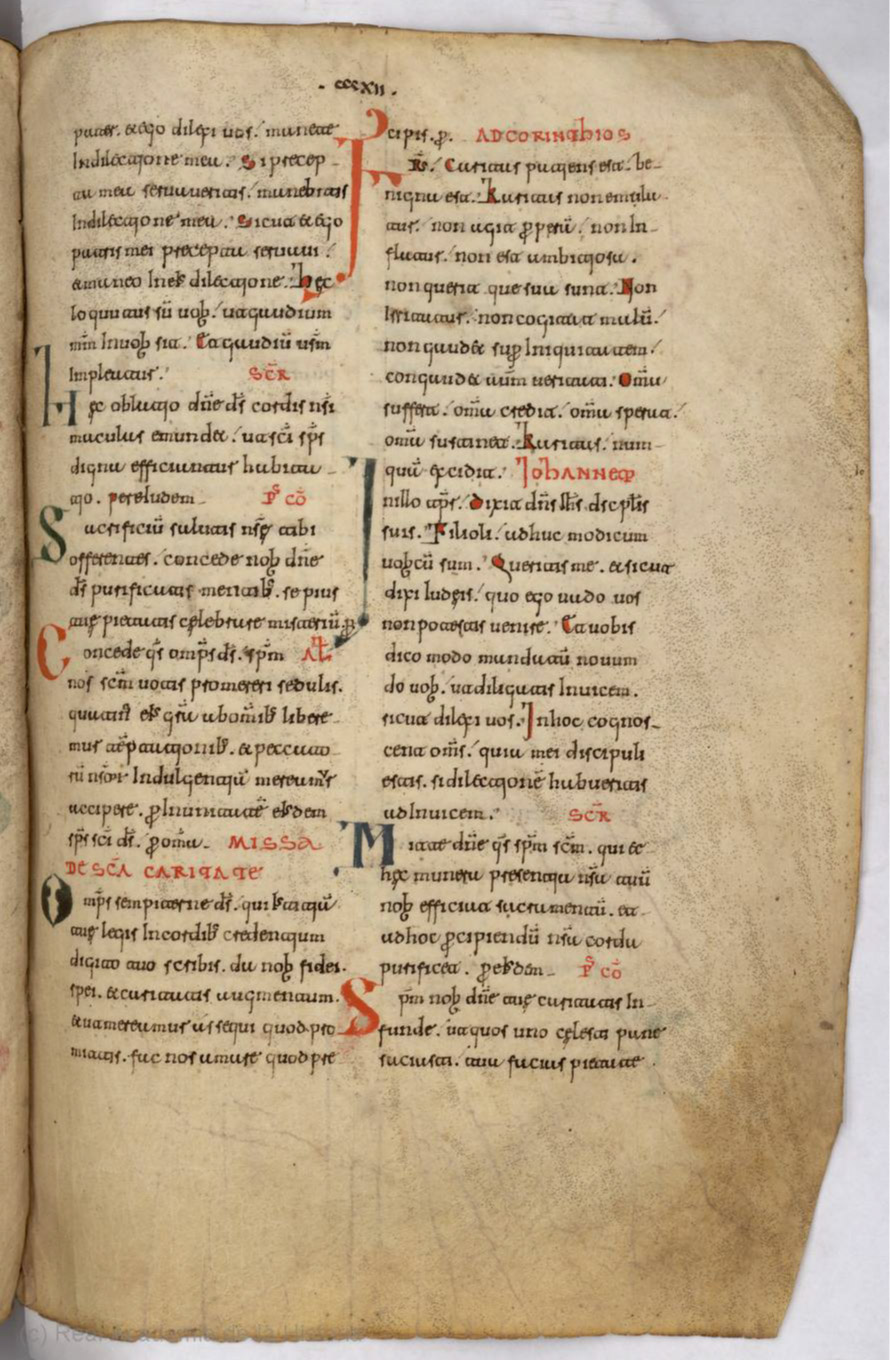 . cccxii .
pater. & ego dilexi uos. manete
In dilectione mea. Si precep
ta mea seruaueritis. manebitis
In dilectione mea. Sicut & ego
patris mei precepta seruaui.
& maneo In ei' dilectione. hęc
loquutus sũ uob. ut gaudium
m̃m In uob sit. Et gaudiũ ur̃m
Impleatur. SCR̃
Hęc oblatio dñe ds̃ cordis nr̃i
maculas emundet. ut sc̃i sp̃s
digna efficiamur habita
tio. per eiudem P̃ CÕ
Sacrificiũ salutis nr̃ę tibi
offerentes. concede nob dñe
ds̃ purificatis mentib. sepius
tuę pietatis cęlebrare misteriũ. p̱
Concede qs̃ omp̃s ds̃. sp̃m AL̃
nos sc̃m uotis promereri sedulis.
quatin' ei' gr̃a ab om̃ib libere
mur tẽptationib. & peccato
rũ nr̃or Indulgentiã mereamur
accipere. p̱ In unitatẽ eiusdem
sp̃s sc̃i ds̃. p̱ omã. MISSA
DE SC̃A CARITATE
Omp̃s sempiterne ds̃. qui karitatẽ
tuę legis In cordib credentium
digito tuo scribis. da nob fidei.
spei. & caritatis augmentum.
& ut mereamur assequi quod pro
mittis. fac nos amare quod pre
cipis. p̱. AD CORINTHIOS
FR̃. Caritas patiens est. be
nigna est. Karitas non emula
tur. non agit p̱perã. non In
flatur. non est ambitiosa.
non querit que sua sunt. Non
Irritatur. non cogitat malũ.
non gaudet sup̱ Iniquitatem.
congaudet aũm ueritati. Omĩa
suffert. omĩa credit. omĩa sperat.
omĩa sustinet. Karitas. num
quã excidit. IOHANNEM
In illo tp̃r. Dixit dñs Ihs̃ discpĩis
suis. Filioli. adhuc modicum
uobcũ sum. Queritis me. & sicut
dixi iudęis. quo ego uado uos
non potestis uenire. Et uobis
dico modo mandatũ nouum
do uob. ut diligatis Inuicem.
sicut dilexi uos. In hoc cognos
cent om̃s. quia mei discipuli
estis. si dilectionẽ habueritis
ad Inuicem. SCR̃
Mitte dñe qs̃ sp̃m sc̃m. qui &
hęc munera presentia nr̃a tuũ
nob efficiat sacramentũ. et
ad hoc p̱cipiendũ nr̃a corda
purificet. p̱ eiusdem P̃ CÕ
Sp̃m nob dñe tuę caritatis In
funde. ut quos uno cęlesti pane
saciasti. tua facias pietate